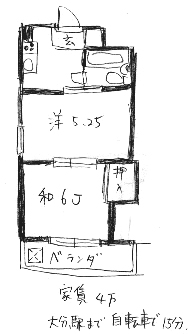 玄
洋 5.25
和 6J
押入
ベランダ
家賃 4万
大分駅まで 自転車で 15分.